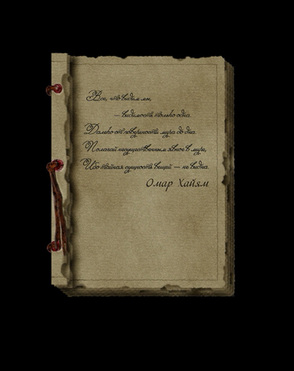 Всё, что видим мы,
– видимость только одна.
Далеко от поверхности мира до дна.
Полагай несущественным явное в мире,
Ибо тайная сущность вещей – не видна.
Омар Хайям